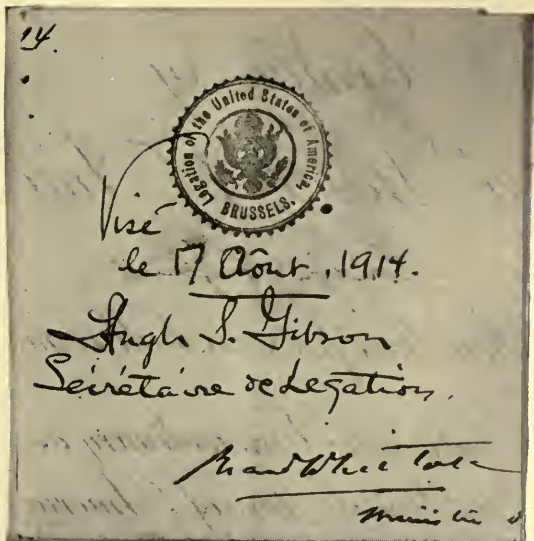 14.
Legation of the United States of America,
BRUSSELS.
Visé
le 17 Août, 1914.
Hugh S. Gibson
Secrétaire de Legation.
Brand Whitlock